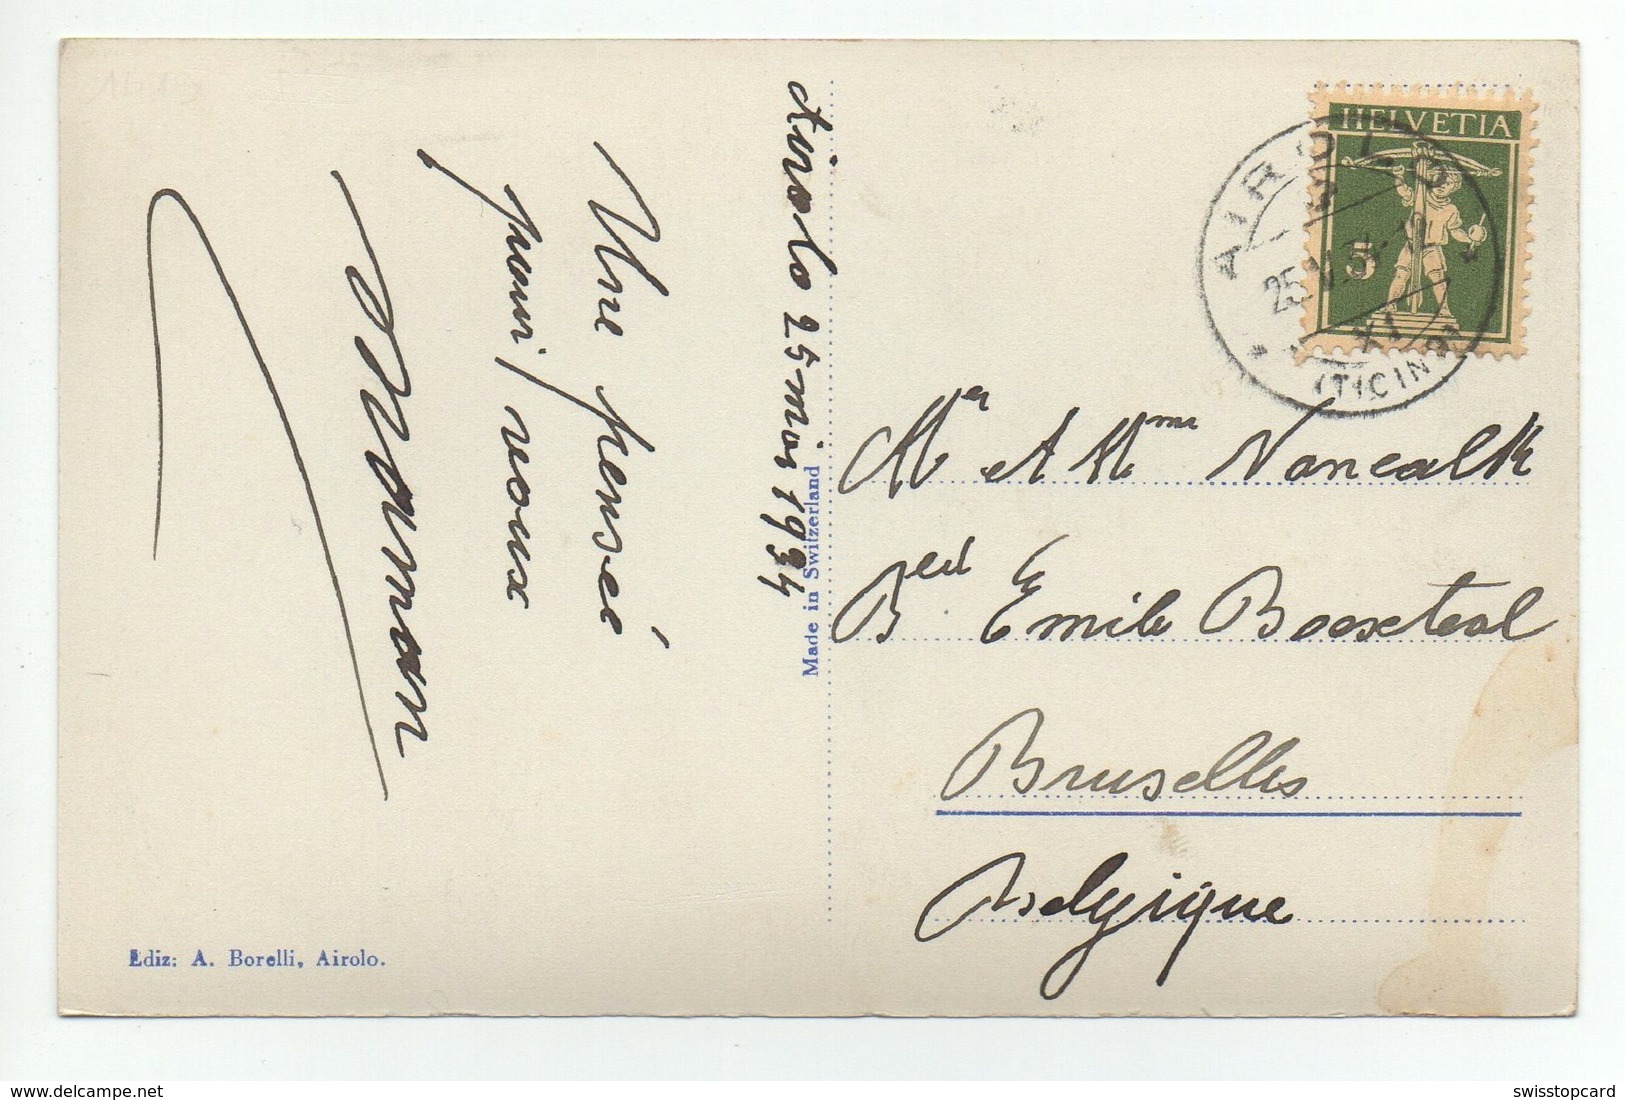 Airolo 25 mai 1934
Une pensée
pour vous
Maman
Made in Switzerland
Ediz: A. Borelli, Airolo.
HELVETIA
5
AIROLO
25. V. 34-12
XI
(TICINO)
Mr et Mme Vancalk
Bed Emile Bockstael
Bruxelles
Belgique
delcampe.net
swisstopcard